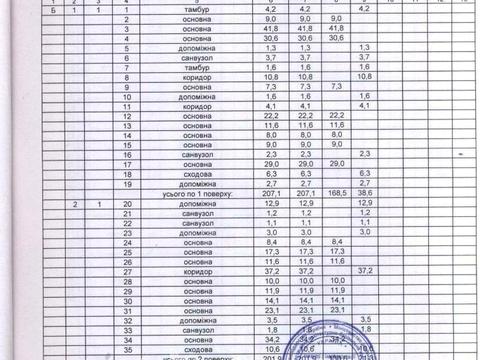 1 2 3 4 5 6 7 8 9
Б 1 1 1 тамбур 4,2 4,2 4,2
2 основна 9,0 9,0 9,0
3 основна 41,8 41,8 41,8
4 основна 30,6 30,6 30,6
5 допоміжна 1,3 1,3 1,3
6 санвузол 3,7 3,7 3,7
7 тамбур 1,6 1,6 1,6
8 коридор 10,8 10,8 10,8
9 основна 7,3 7,3 7,3
10 допоміжна 1,6 1,6 1,6
11 коридор 4,1 4,1 4,1
12 основна 22,2 22,2 22,2
13 основна 11,6 11,6 11,6
14 основна 8,0 8,0 8,0
15 основна 9,0 9,0 9,0
16 санвузол 2,3 2,3 2,3
17 основна 29,0 29,0 29,0
18 сходова 6,3 6,3 6,3
19 допоміжна 2,7 2,7 2,7
усього по 1 поверху: 207,1 207,1 168,5 38,6
2 1 20 допоміжна 12,9 12,9 12,9
21 санвузол 1,2 1,2 1,2
22 санвузол 1,1 1,1 1,1
23 допоміжна 3,0 3,0 3,0
24 основна 8,4 8,4 8,4
25 основна 17,3 17,3 17,3
26 основна 11,6 11,6 11,6
27 коридор 37,2 37,2 37,2
28 основна 10,0 10,0 10,0
29 основна 11,9 11,9 11,9
30 основна 14,1 14,1 14,1
31 основна 23,1 23,1 23,1
32 допоміжна 3,5 3,5 3,5
33 санвузол 1,8 1,8 1,8
34 основна 34,2 34,2 34,2
35 сходова 10,6 10,6 10,6
усього по 2 поверху: 201,9